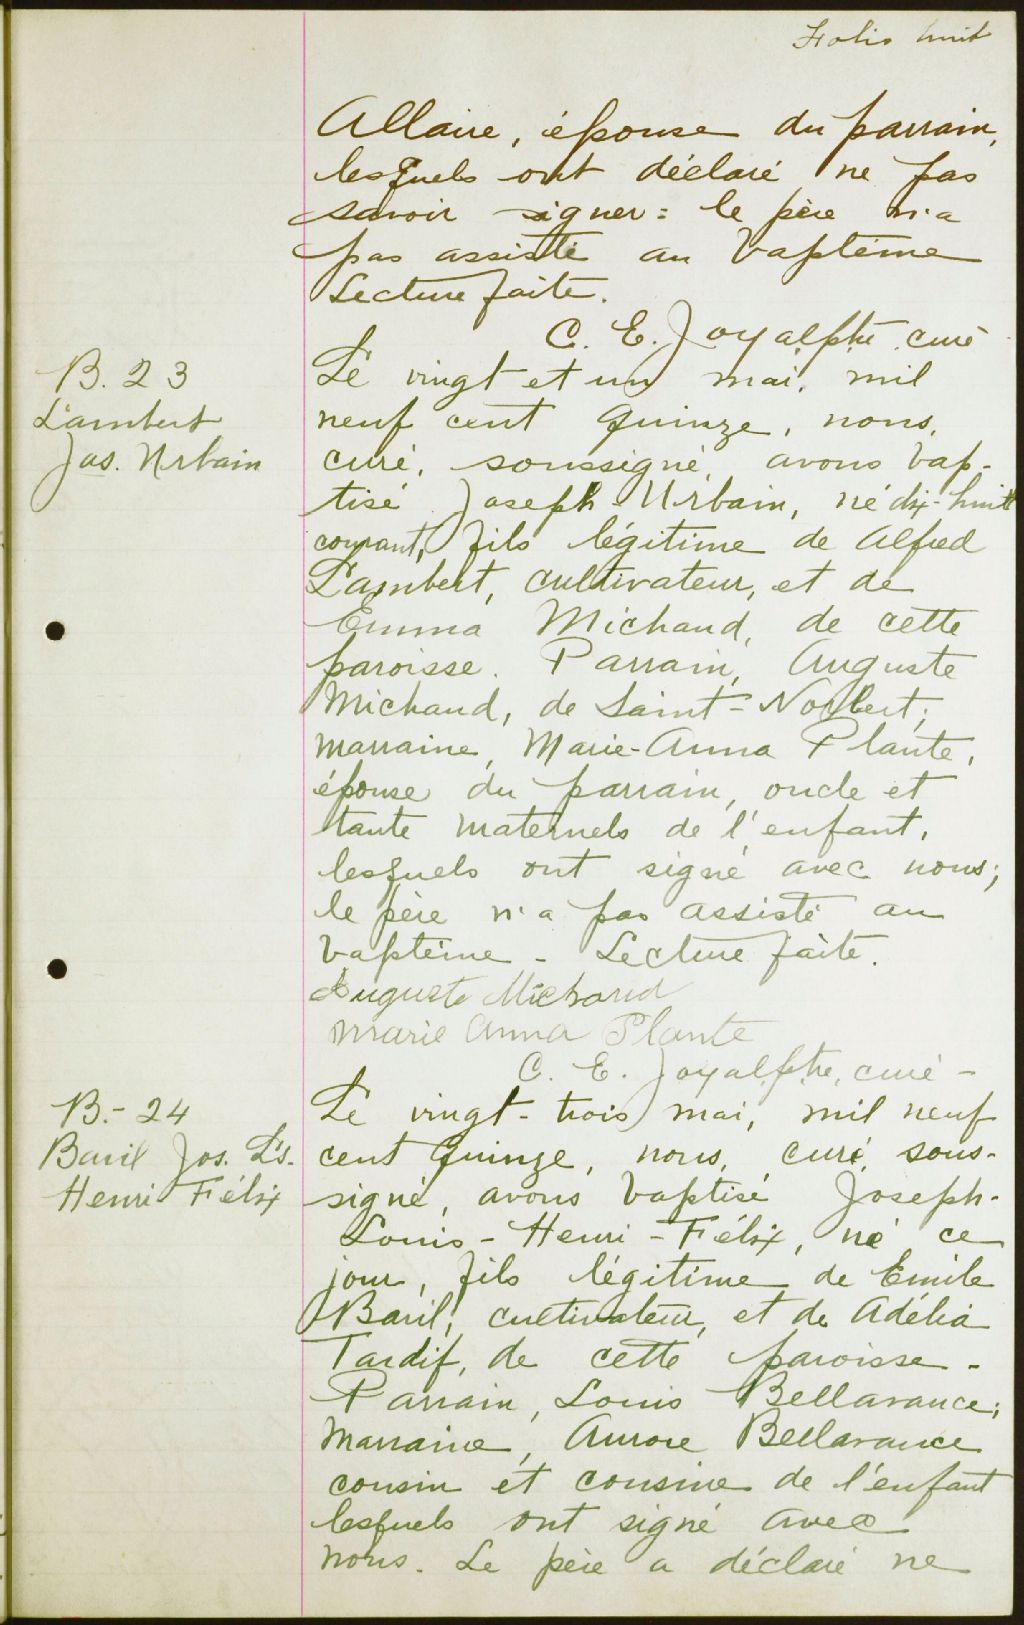 Folio huit
Allaire, épouse du parrain,
lesquels ont déclaré ne pas
savoir signer: le père n'a
pas assisté au baptême
Lecture faite.
C. E. Joyal, ptre, curé
B. 23
Lambert
Jos. Urbain
Le vingt et un mai, mil
neuf cent quinze, nous,
curé, soussigné, avons bap-
tisé Joseph-Urbain, né dix-huit
courant, fils légitime de Alfred
Lambert, cultivateur, et de
Emma Michaud, de cette
paroisse. Parrain, Auguste
Michaud, de Saint-Norbert;
marraine, Marie-Anna Plante,
épouse du parrain, oncle et
tante maternels de l'enfant,
lesquels ont signé avec nous;
le père n'a pas assisté au
baptême - Lecture faite.
Auguste Michaud
Marie Anna Plante
C. E. Joyal, ptre, curé -
B.- 24
Baril Jos. Ls.
Henri Félix
Le vingt-trois mai, mil neuf
cent quinze, nous, curé, sous-
signé, avons baptisé Joseph-
Louis-Henri-Félix, né ce
jour, fils légitime de Emile
Baril, cultivateur, et de Adélia
Tardif, de cette paroisse -
Parrain, Louis Bellavance;
marraine, Aurore Bellavance
cousin et cousine de l'enfant
lesquels ont signé avec
nous. Le père a déclaré ne